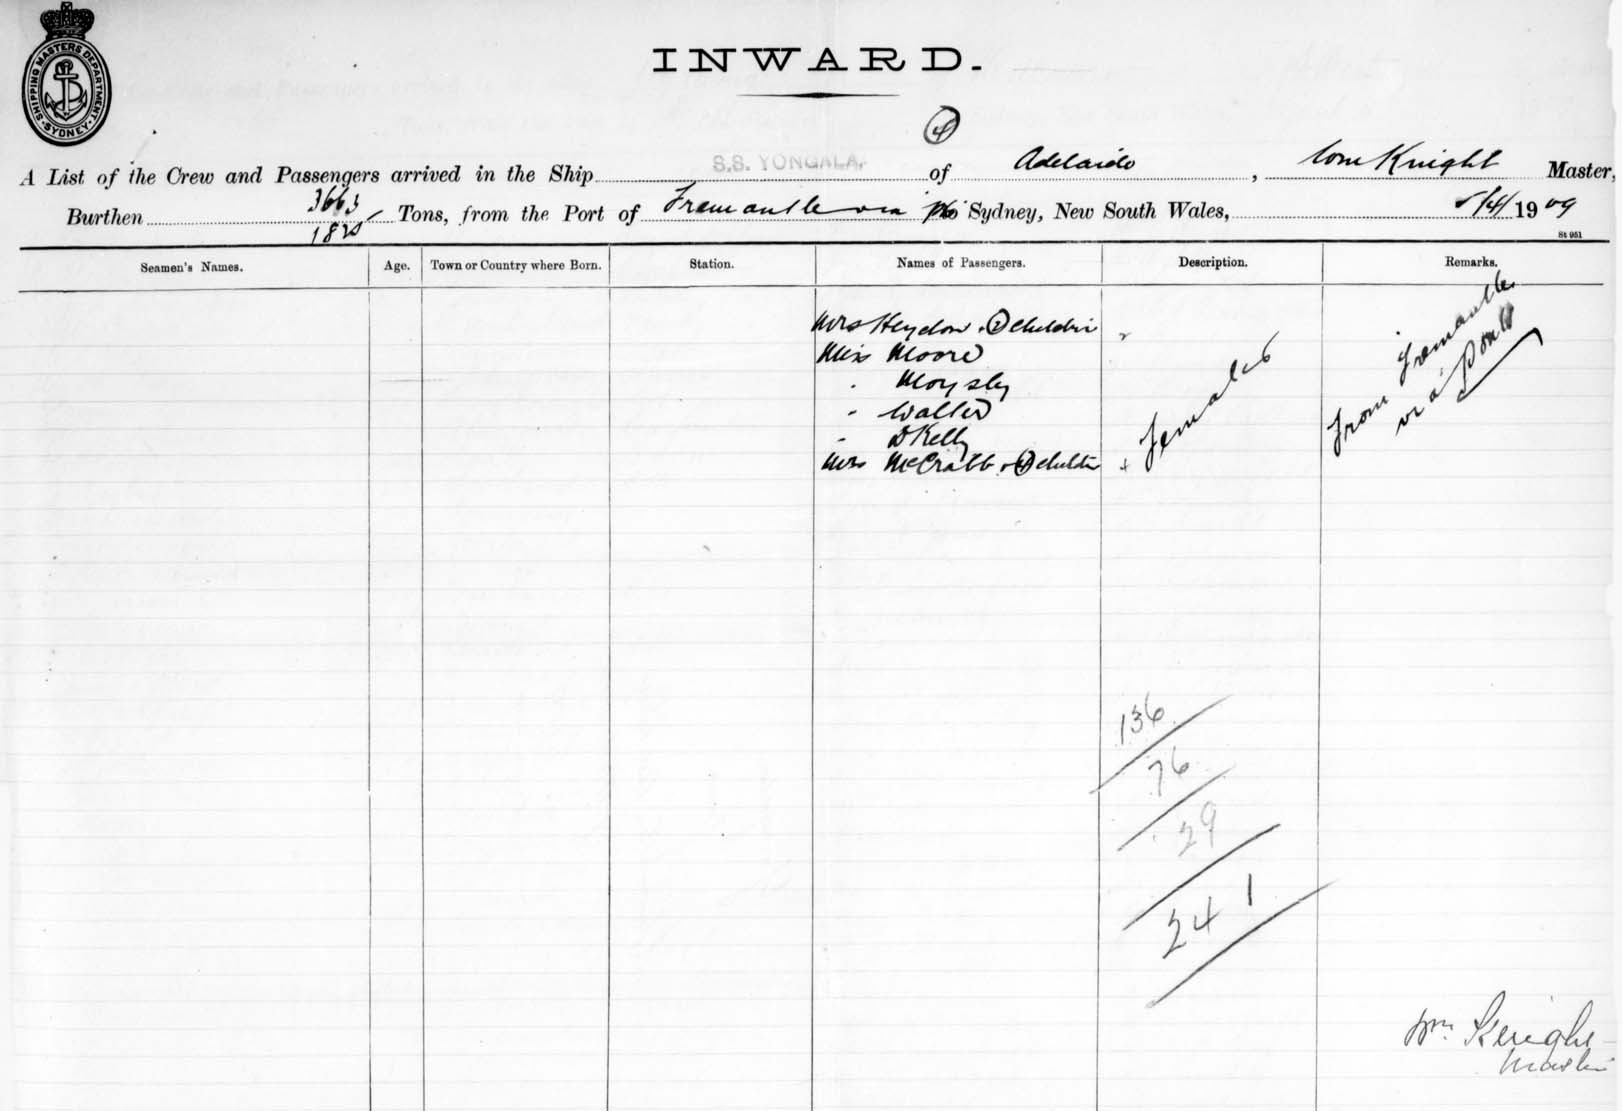 SHIPPING MASTERS DEPARTMENT
SYDNEY
INWARD.
4
A List of the Crew and Passengers arrived in the Ship S.S. YONGALA. of Adelaide, Wm Knight Master,
Burthen 3663 Tons, from the Port of Fremantle via to Sydney, New South Wales, 1909
St 951
Seamen's Names. Age. Town or Country where Born. Station. Names of Passengers. Description. Remarks.
Mrs Heydon & 2 children
Miss Moore
" Moysey
" Waller
" D Kelly
Mrs McCrabb & children
Females
From Fremantle
via Ports
136
76
29
241
Wm Knight
Master